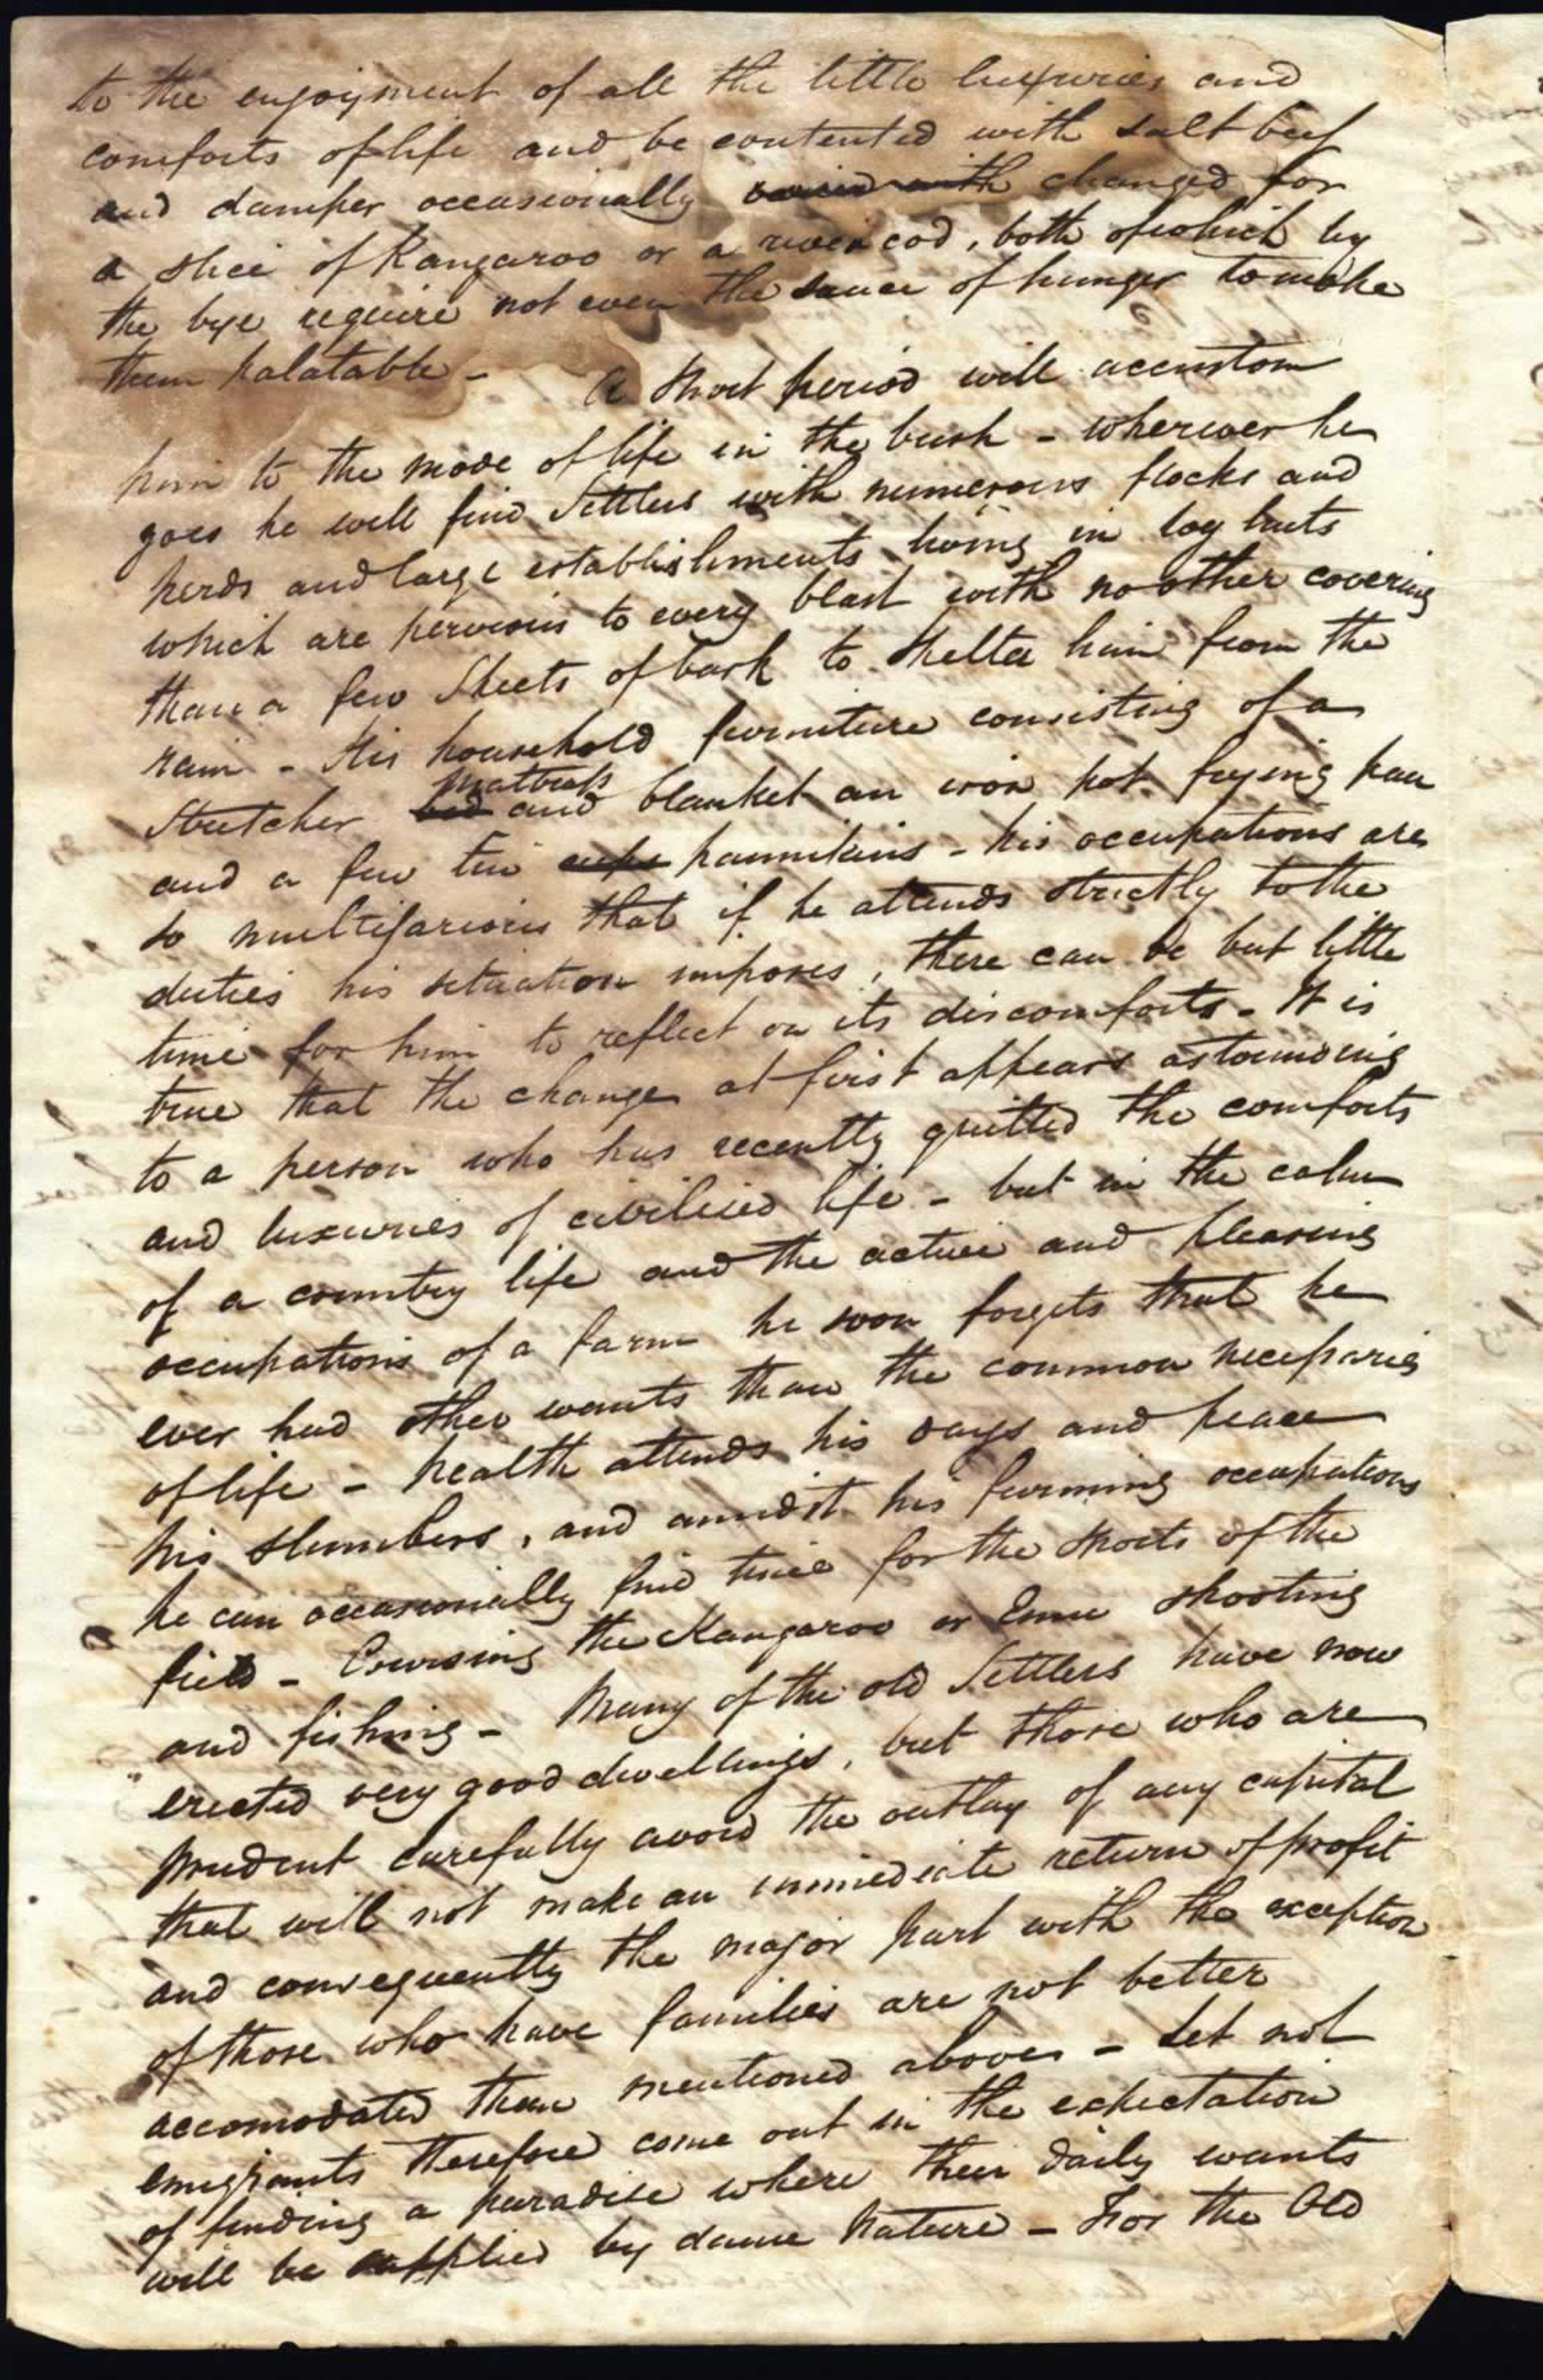 to the enjoyment of all the little luxuries and
comforts of life and be contented with salt beef
and damper occasionally varied with changed for
a slice of Kangaroo or a river cod, both of which by
the bye require not even the sauce of hunger to make
them palatable - A short period will accustom
him to the mode of life in the bush - wherever he
goes he will find Settlers with numerous flocks and
herds and large establishments living in log huts
which are pervious to every blast with no other covering
than a few Sheets of bark to shelter him from the
rain - His household furniture consisting of a
Stretcher bed mattrass and blanket an iron pot frying pan
and a few tin cups pannikins - his occupations are
so multifarious that if he attends strictly to the
duties his situation imposes, there can be but little
time for him to reflect on its discomforts - It is
true that the change at first appears astounding
to a person who has recently quitted the comforts
and luxuries of civilised life - but in the calm
of a country life and the active and pleasing
occupations of a farm he soon forgets that he
ever had other wants than the common necessaries
of life - health attends his days and peace
his slumbers, and amidst his farming occupations
he can occasionally find time for the sports of the
field - Coursing the Kangaroo or Emu shooting
and fishing - Many of the old Settlers have now
erected very good dwellings, but those who are
prudent carefully avoid the outlay of any capital
that will not make an immediate return of profit
and consequently the major part with the exception
of those who have families are not better
accomodated than mentioned above - Let not
emigrants therefore come out in the expectation
of finding a paradise where their daily wants
will be supplied by dame Nature - For the Old